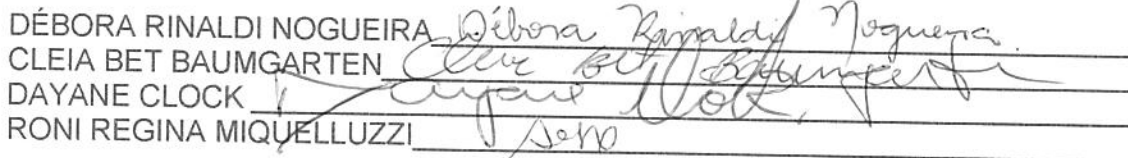 DÉBORA RINALDI NOGUEIRA Débora Rinaldi Nogueira
CLEIA BET BAUMGARTEN Cleia Bet Baumgarten
DAYANE CLOCK Dayane Clock
RONI REGINA MIQUELLUZZI